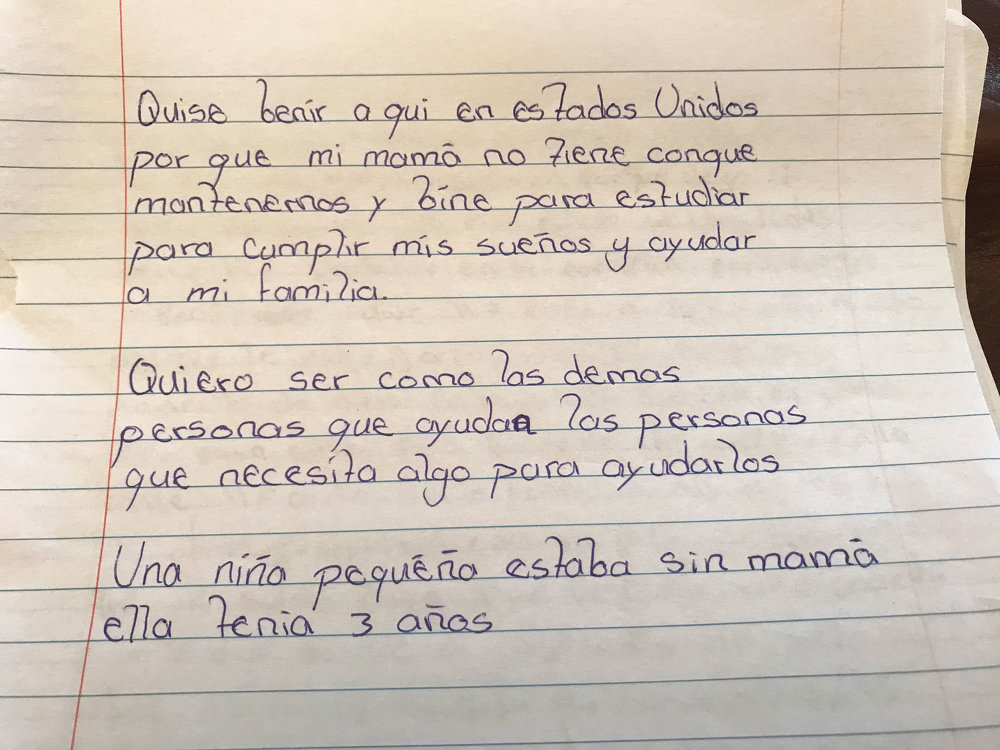 Quise benir a qui en estados Unidos
por que mi mamá no tiene conque
mantenernos y bine para estudiar
para cumplir mis sueños y ayudar
a mi familia.
Quiero ser como las demas
personas que ayudan las personas
que necesita algo para ayudarlos
Una niña pequeña estaba sin mamá
ella tenia 3 años